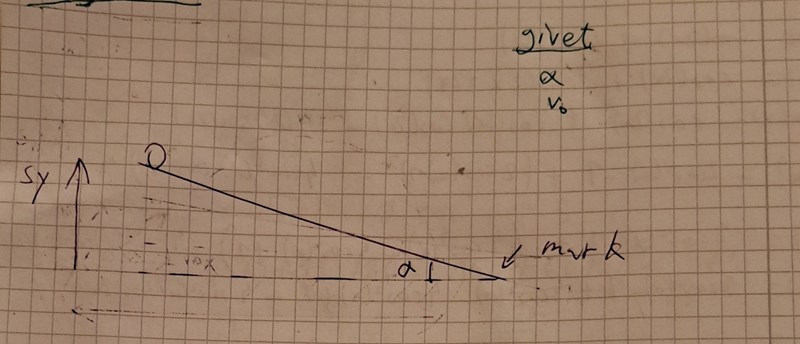 givet
α
v₀
sy
α
mark